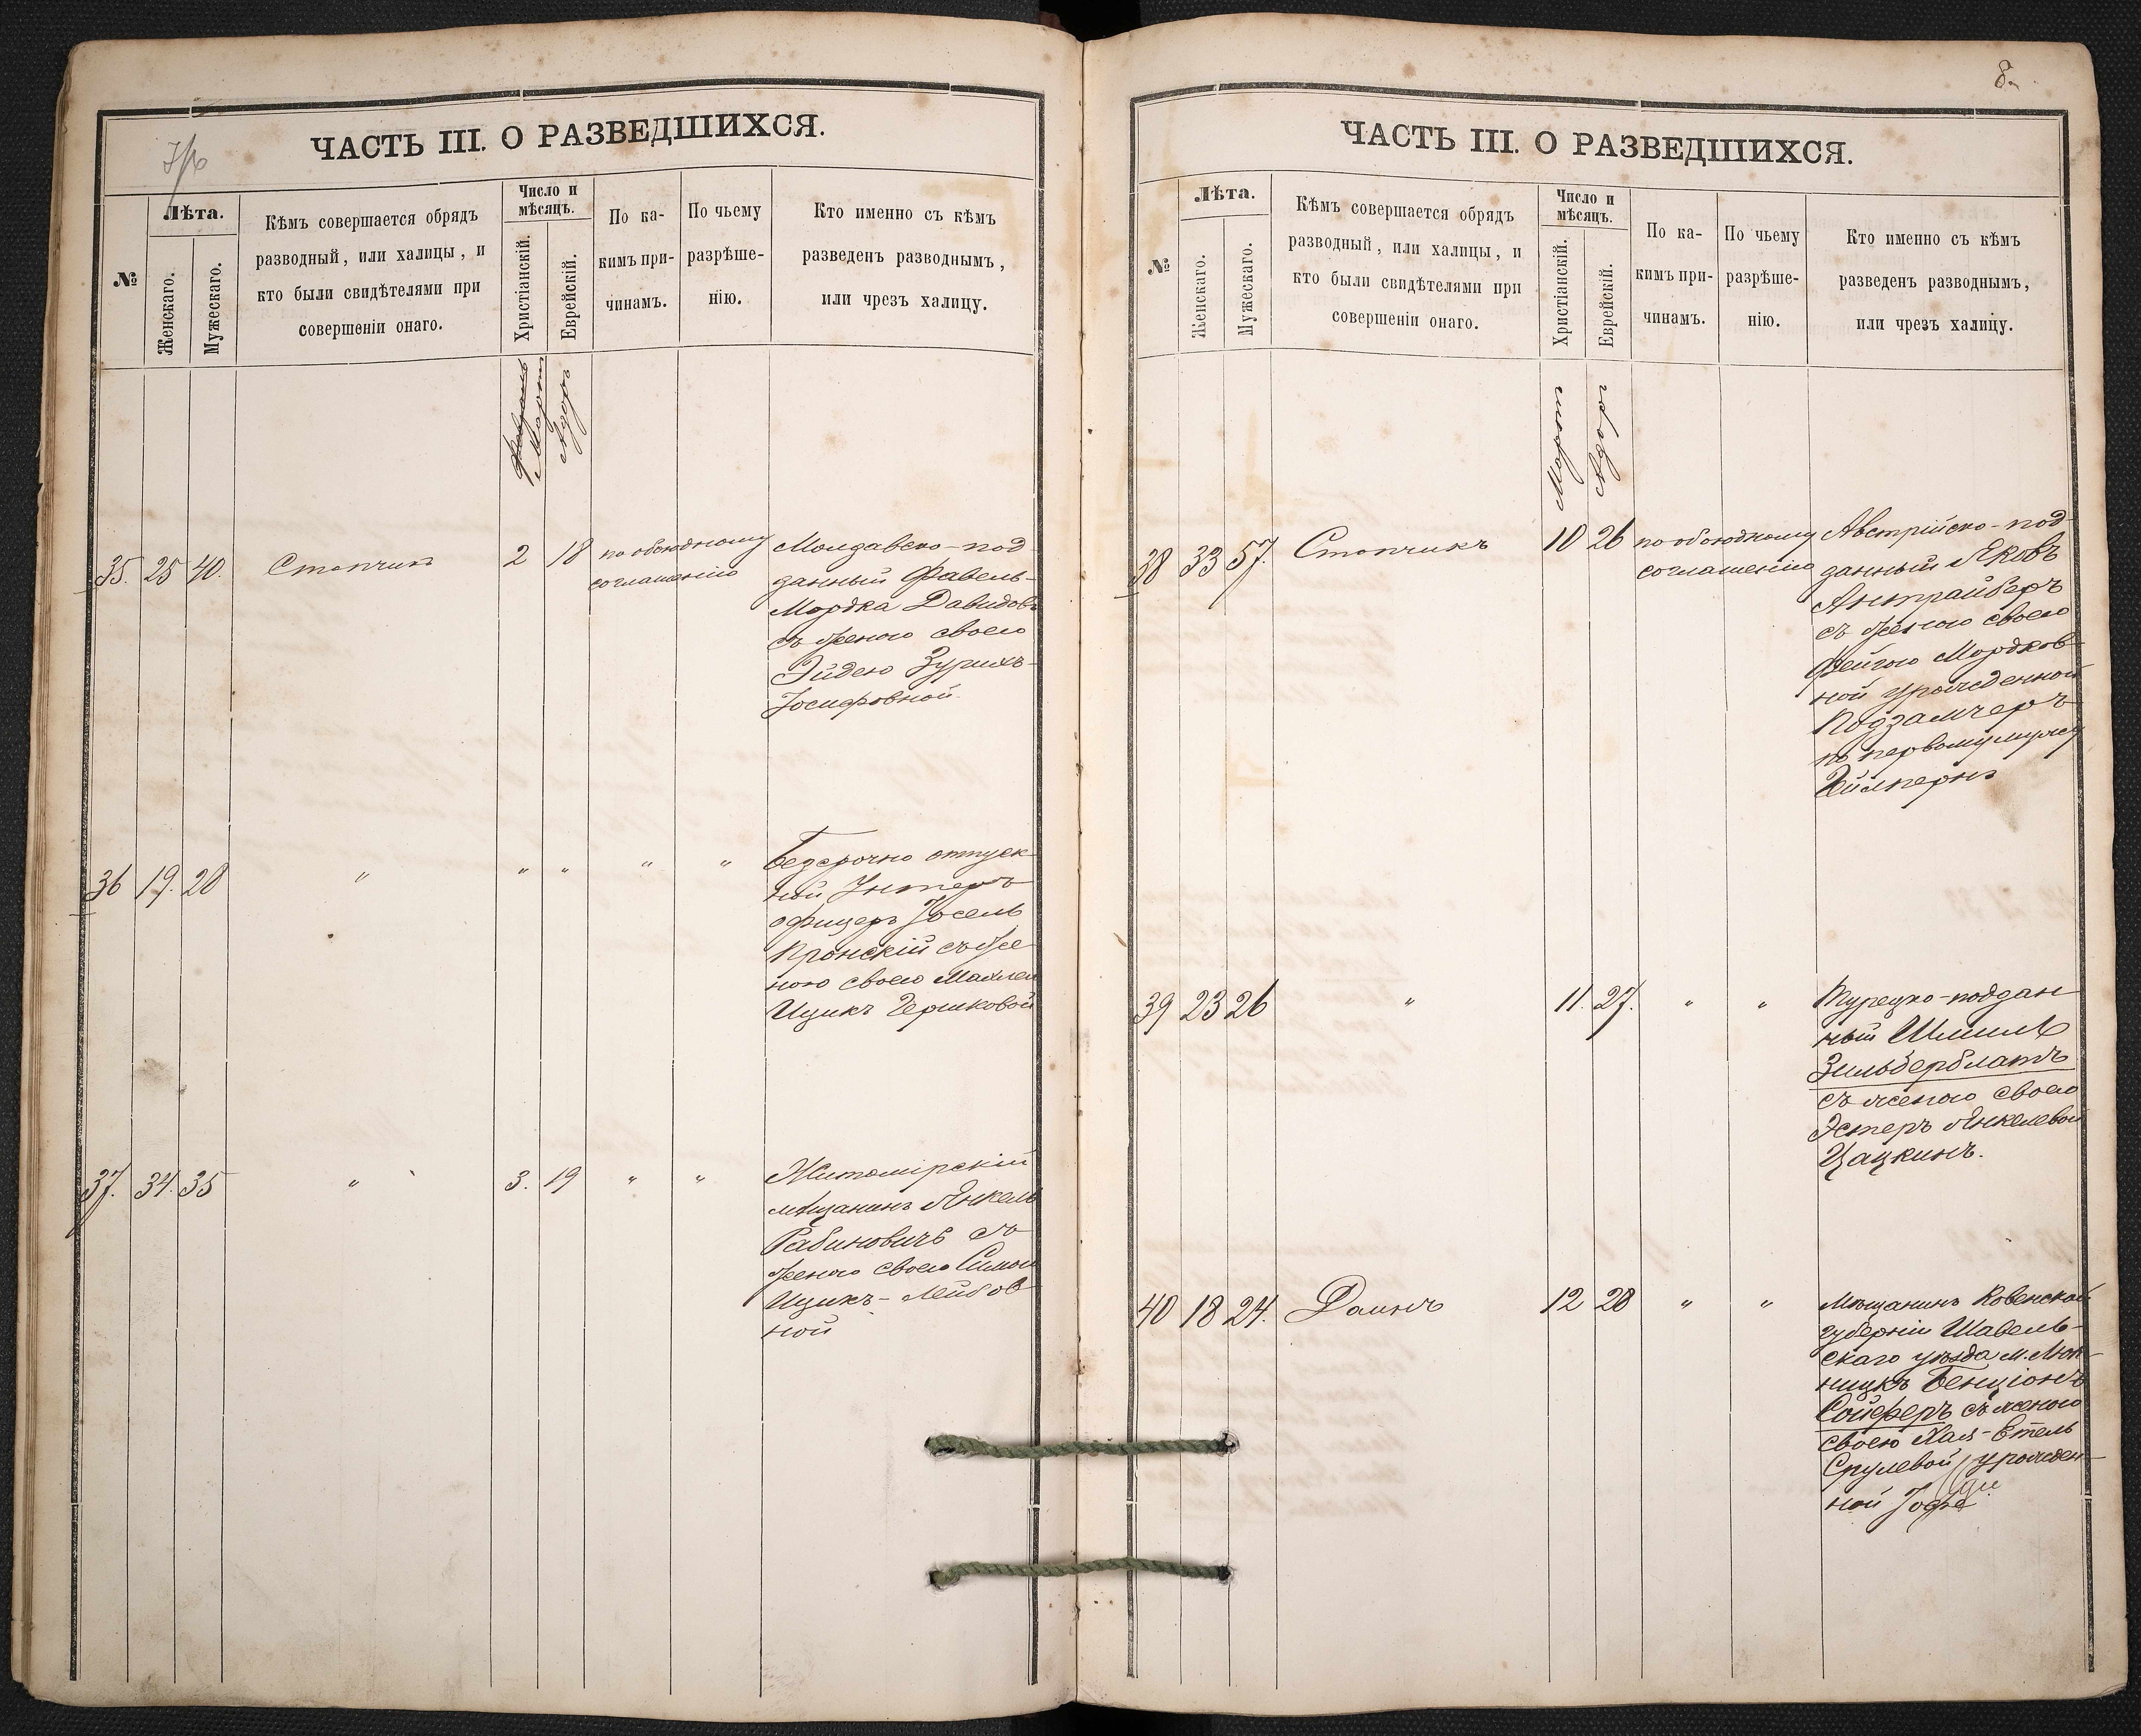 ЧАСТЬ III. О РАЗВЕДШИХСЯ.
№
Лѣта.
Женскаго.
Мужескаго.
Кѣмъ совершается обрядъ
разводный, или халицы, и
кто были свидѣтелями при
совершеніи онаго.
Число и
мѣсяцъ.
Христіанскій.
Еврейскій.
По ка-
кимъ при-
чинамъ.
По чьему
разрѣше-
нію.
Кто именно съ кѣмъ
разведенъ разводнымъ,
или чрезъ халицу.
Мартъ
Адоръ
35. 25 40. Стопчикъ 2 18 по обоюдному
соглашенію
Молдавско-под
данный Фавель-
Мордка Давидовъ
съ женою своею
Эйдею Зурихъ-
Іосифовной.
36 19. 28 " " " " "
Безсрочно отпуск-
ной Унтеръ
офицеръ Іосель
Пронскій съ же
ною своею
Ицикъ Гершковой
37. 34. 35 " 3. 19 " "
Житомірскій
мѣщанинъ Янкель
Рабиновичъ съ
женою своею Симою
Ицикъ-Лейбов
ной
8.
ЧАСТЬ III. О РАЗВЕДШИХСЯ.
№
Лѣта.
Женскаго.
Мужескаго.
Кѣмъ совершается обрядъ
разводный, или халицы, и
кто были свидѣтелями при
совершеніи онаго.
Число и
мѣсяцъ.
Христіанскій.
Еврейскій.
По ка-
кимъ при-
чинамъ.
По чьему
разрѣше-
нію.
Кто именно съ кѣмъ
разведенъ разводнымъ,
или чрезъ халицу.
Мартъ
Адоръ
38 33 57. Стопчикъ 10 26 по обоюдному
соглашенію
Австрійско-под
данный Яковъ
Антрайберъ
съ женою своею
Фейгою Мордков
ной урожденной
Подзамчеръ
по первому мужу
Гейлпернъ
39 23 26 " 11. 27. " "
Турецко-поддан
ный Шмиль
Зильберблатъ
съ женою своею
Эстеръ Янкелевой
Цацкинъ.
40 18 24. Даинъ 12 28 " "
Мѣщанинъ Ковенской
губерніи Шавель-
скаго уѣзда м.
Бенціонъ
Сойферъ съ женою
своею Хая-Етель
Срулевой, урожден-
ной Іофе